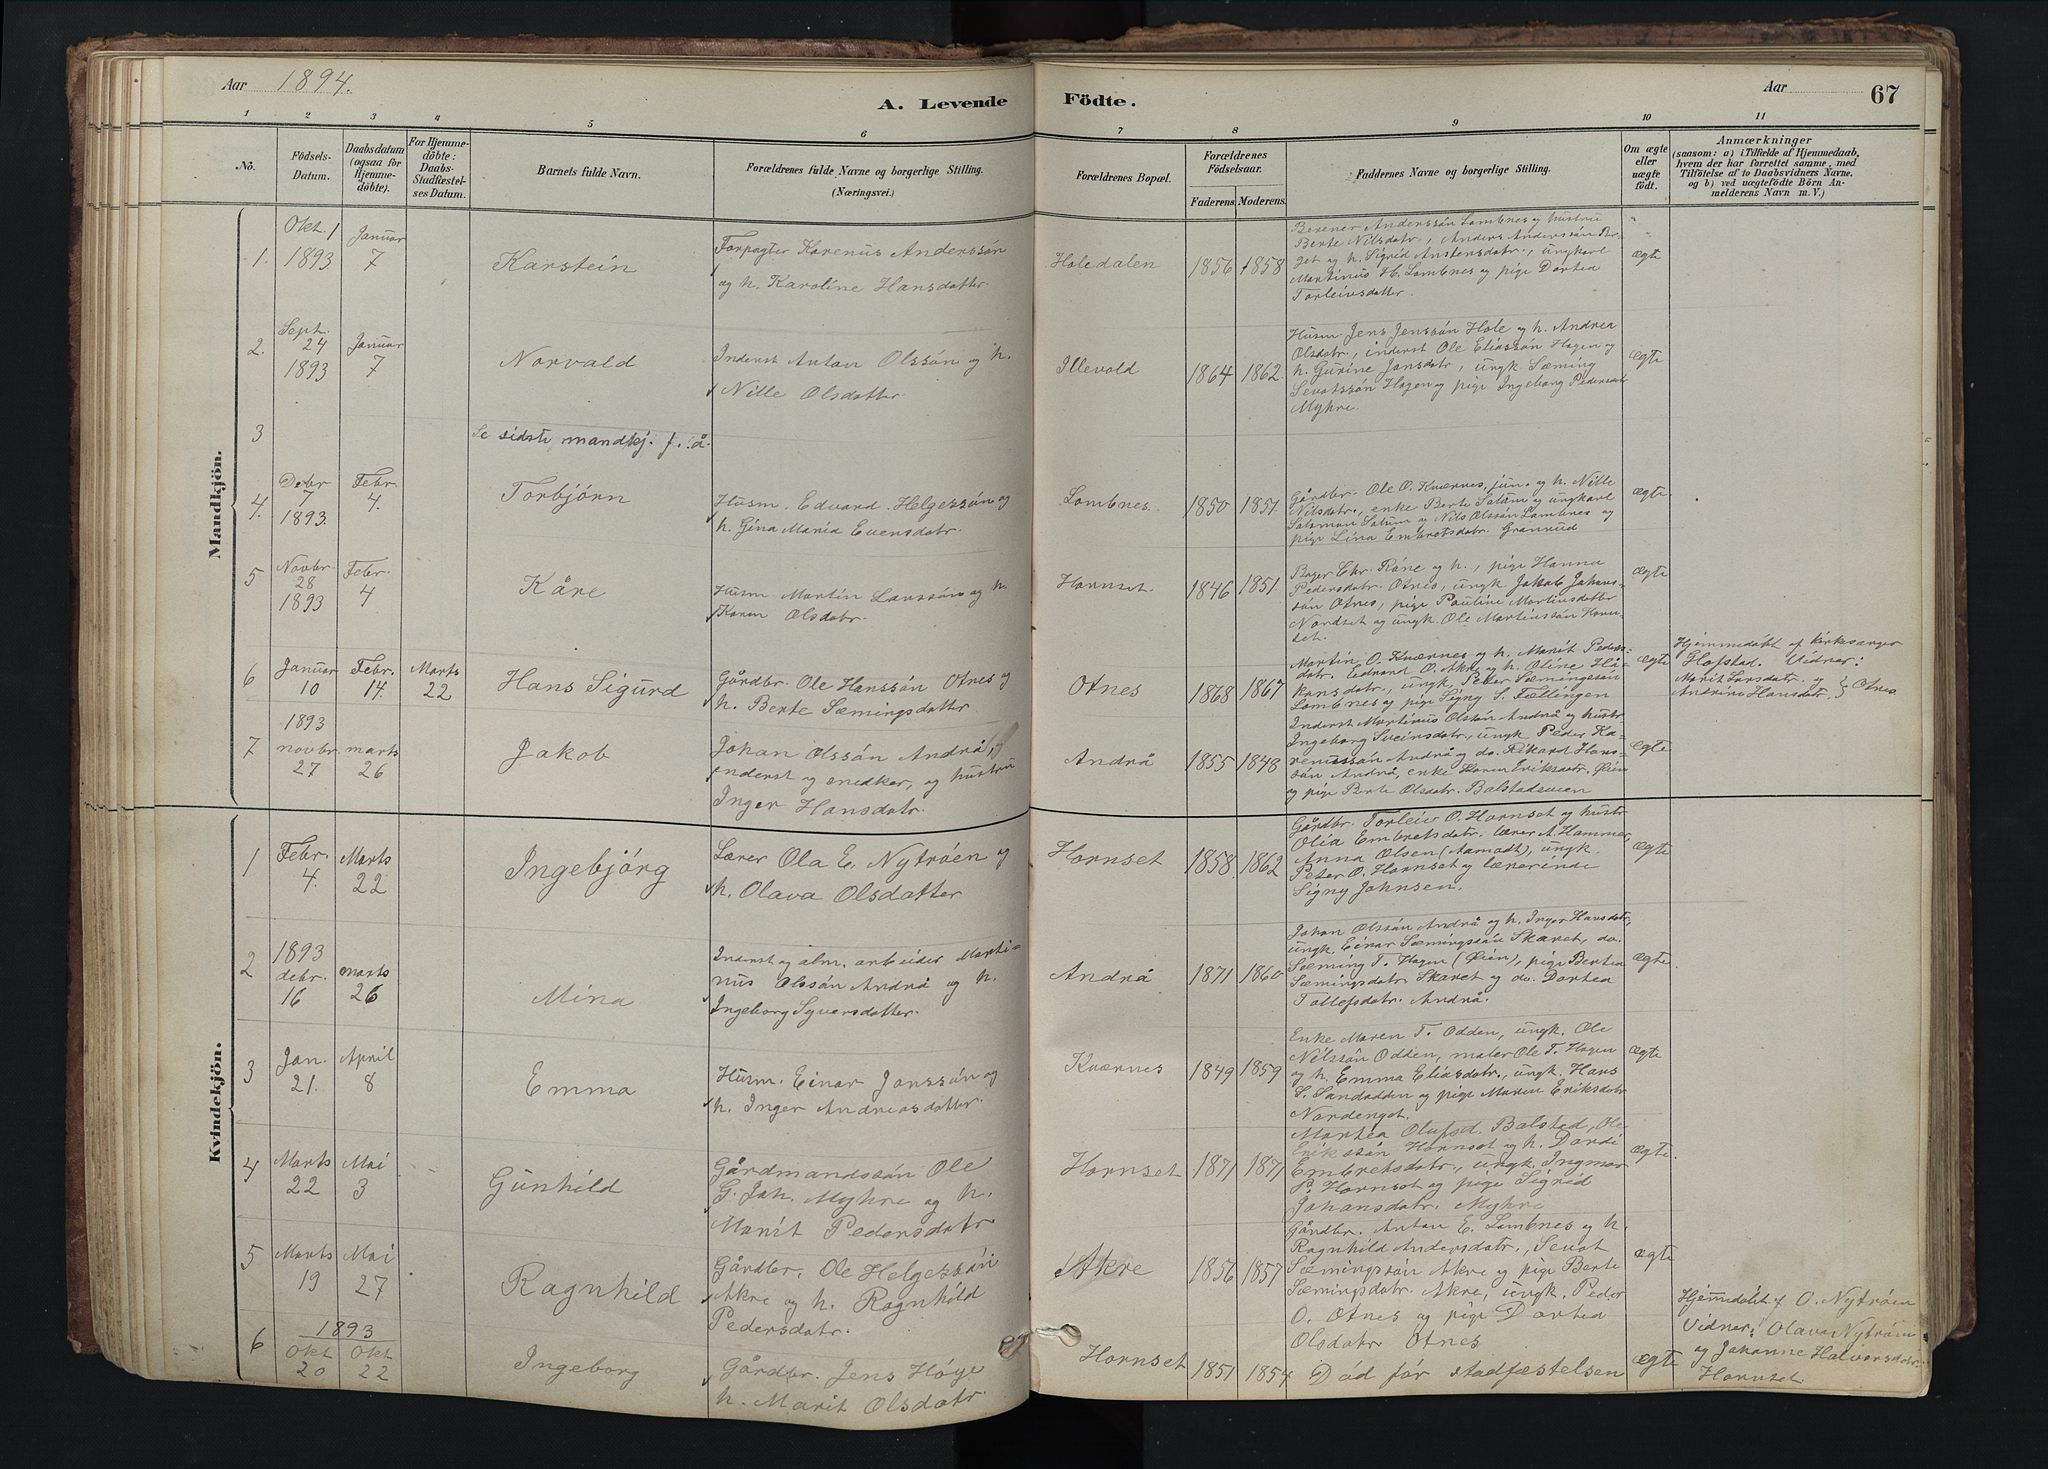 Aar 1894.
A. Levende Födte.
Aar
67
1 2 3 4 5 6 7 8 9 10 11
No.
Födsels-Datum.
Daabsdatum (ogsaa for Hjemmedöbte).
For Hjemmedöbte: Daabs-Stadfæstelses Datum.
Barnets fulde Navn.
Forældrenes fulde Navne og borgerlige Stilling.
(Næringsvei.)
Forældrenes Bopæl.
Forældrenes Födselsaar.
Faderens. Moderens.
Faddernes Navne og borgerlige Stilling.
Om ægte eller uægte födt.
Anmærkninger
(saasom: a) i Tilfælde af Hjemmedaab,
hvem der har forrettet samme, med
Tilföielse af to Daabsvidners Navne,
og b) ved uægtefödte Börn Anmelderens Navn m. V.)
Mandkjön.
1. Okt. 1 1893 Januar 7 Karstein
Forpagter Karenus Anderssön
og h. Karoline Hansdatter
Holedalen 1856 1858
Berener Anderssön Lombnes og hustru
Berte Nilsdatr., Anders Anderssön
og h. Sigrid Anstensdatr., ungkarl
Martinus H. Lombnes og pige Dortea
Torleivsdatter.
ægte
2. Sept. 24 1893 Januar 7 Norvald
Inderst Anton Olssön og h.
Nille Olsdatter.
Illevold 1864 1862
Husm Jens Jenssön Hole og h. Andrea
Olsdatr., inderst Ole Eliassön Hagen og
h. Gurine Jonsdatr., ungk Sæming
Sevatssön Hagen og pige Ingeborg Pedersdatr
Myhre.
ægte
3 Se sidste mandkj. f. å.
4. Debr 7 1893. Febr 4. Torbjörn
Husm. Edvard Helgessön og
h. Gina Maria Evensdatr.
Lombnes. 1850 1851.
Gårdbr. Ole O. Kværnes, jun. og h. Nille
Nilsdatr., enke Berte Satum og ungkarl
Salamon Satum og Nils Olssön Lombnes og
pige Lina Embretsdatr. Granrud
ægte
5 Novbr. 28 1893 Febr. 4 Kåre
Husm Martin Larssön og h.
Karen Olsdatr.
Hornset. 1846 1851.
Bager Chr. Råne og h., pige Hanna
Pedersdatr. Otnes, ungk Jakob Johans-
sön Otnes, pige Pauline Martinsdatter
Nordset og ungk. Ole Martinssön Horn-
set.
ægte
6 Januar 10 Febr. 14 Marts 22 Hans Sigurd
Gårdbr. Ole Hanssön Otnes og
h. Berte Sæmingsdatter
Otnes 1868 1867
Martin O. Kværnes og h. Marit Peders-
datr. Edvard O. Akre og h. Oline Hå-
kansdatr., ungk. Peder Sæmingssön
Lombnes og pige Signy S. Fællingen
ægte
Hjemmedöbt af kirkesanger
Hofstad. Vidner:
Marit Larsdatr. og
Andrine Hansdatr. } Otnes
7 1893 novbr. 27 marts 26 Jakob
Johan Olssön Andrå,
inderst og snedker, og hustru
Inger Hansdatr.
Andrå 1855 1848
Inderst Martinus Olssön Andrå og hustr.
Ingeborg Sveinsdatr., ungk Peder Ka-
renussön Andrå og do. Rikard Hans-
sön Andrå, enke Karen Eriksdatr. Öien
og pige Berte Olsdatr. Balstadeveien
ægte
Kvindekjön.
1 Febr. 4. Marts 22 Ingebjörg
Lærer Ola E. Nytröen og
h. Olava Olsdatter
Hornset 1858. 1862
Gårdbr. Torleiv O. Hornset og hustr.
Olia Embretsdatr. lærer A. Hammer,
Anna Olsen (Aamodt), ungk.
Peter O. Hornset og lærerinde
Signy Johnsen.
ægte
2 1893 debr. 16 marts 26 Mina
Inderst og alm. arbeider Marti-
nus Olssön Andrå og h.
Ingeborg Syversdatter.
Andrå 1871 1860
Johan Olssön Andrå og h. Inger Hansdatr,
ungk. Einar Sæmingssön Skaret, do.
Sæming T. Hagen (Öien), pige Bertea
Sæmingsdatr. Skaret og do. Dortea
Tollefsdatr. Andrå.
ægte
3 Jan. 21. April 8 Emma
Husm. Einar Jonssön og
h. Inger Andreasdatter.
Kværnes 1849 1859
Enke Maren T. Odden, ungk. Ole
Nilssön Odden, maler Ole T. Hagen
og h. Emma Eliasdatr., ungk. Hans
S. Sandodden og pige Maren Eriksdatr
Nordenget.
ægte
4 Marts 22 Mai 3 Gunhild
Gårdmandssön Ole
G. Joh. Myhre og h.
Marit Pedersdatr
Hornset 1871 1871
Martea Olufsd. Balstad, Ole
Erikssön Hornset og h. Dordi
Embretsdatr., ungk. Ingmar
P. Hornset og pige Sigrid
Johansdatr. Myhre
ægte.
5 Marts 19 Mai 27 Ragnhild
Gårdbr. Ole Helgessön
Akre og h. Ragnhild
Pedersdatr.
Akre 1856 1857
Gårdbr. Anton E. Lombnes og h.
Ragnhild Andersdatr., Sevat
Sæmingssön Akre og pige Berte
Sæmingsdatr. Akre, ungk. Peder
O. Otnes og pige Dortea
Olsdatr Otnes
ægte
6 1893 Okt 20 Okt 22 Ingeborg
Gårdbr. Jens Höye
h. Marit Olsdatr
Hornset 1851 1854
Död för stadfæstelsen
ægte
Hjemdöbt af O. Nytröen
Vidner: Olava Nytröen
og Johanne Halvorsdatr.
Hornset